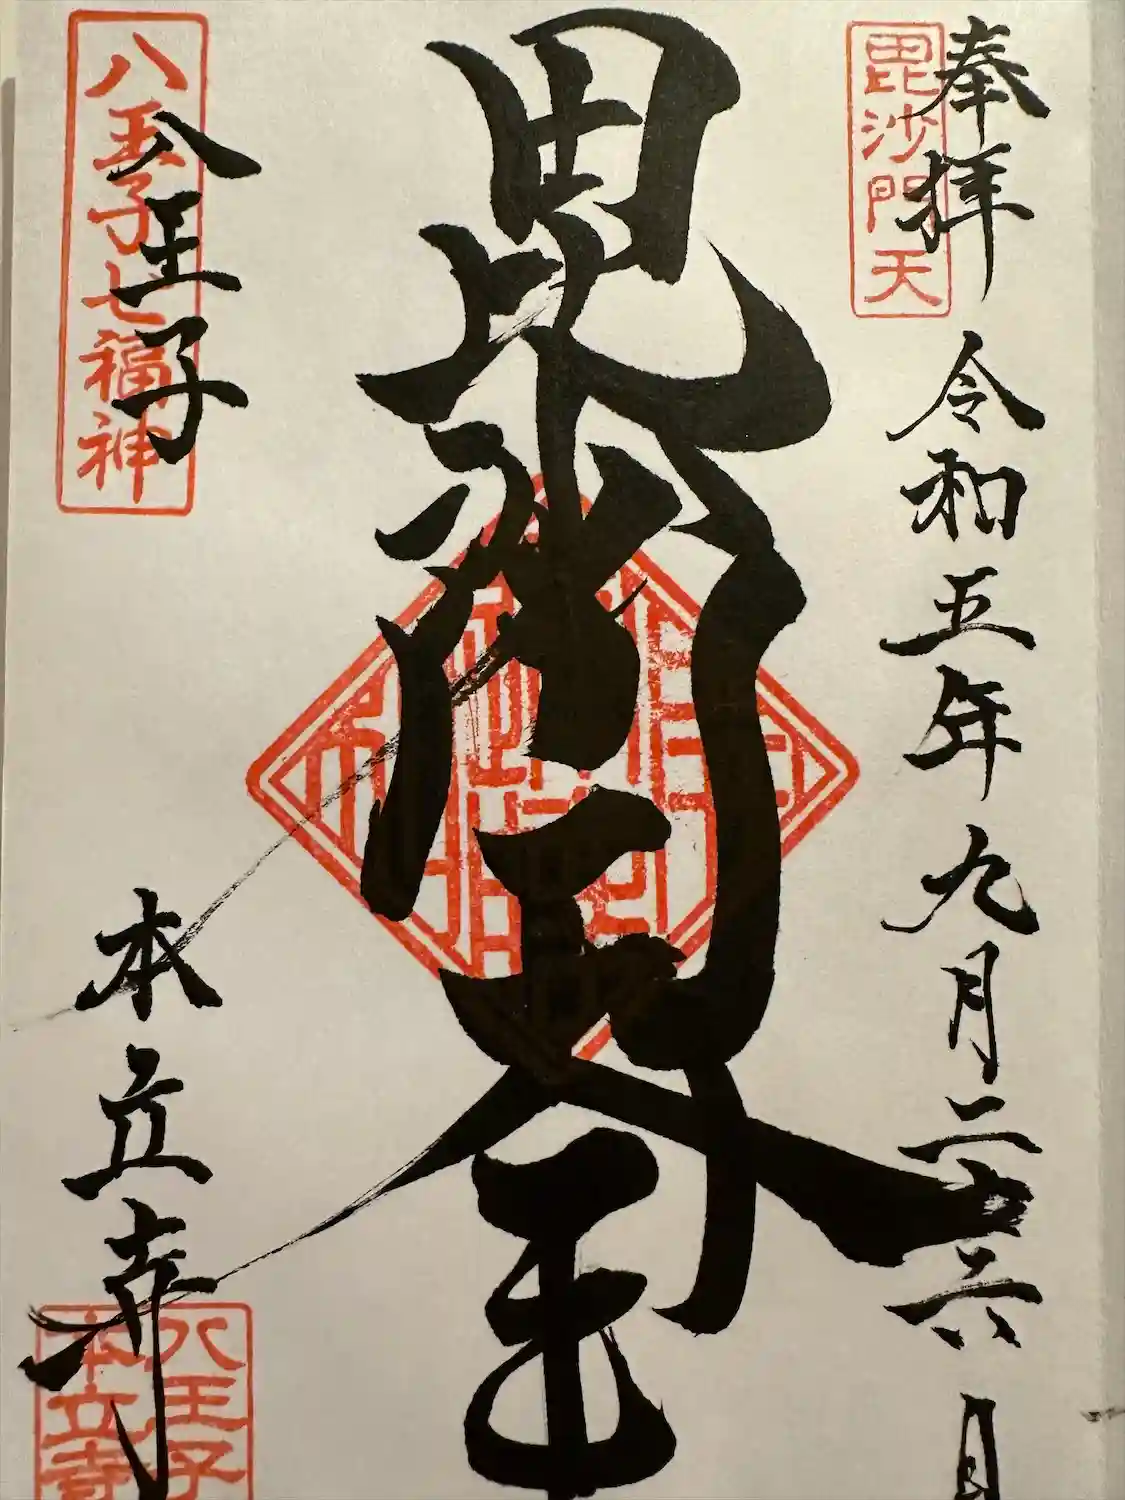 奉拝
毘沙門天
令和五年九月二十六日
毘沙門天王
八王子七福神
八王子
本立寺
八王子
本立寺